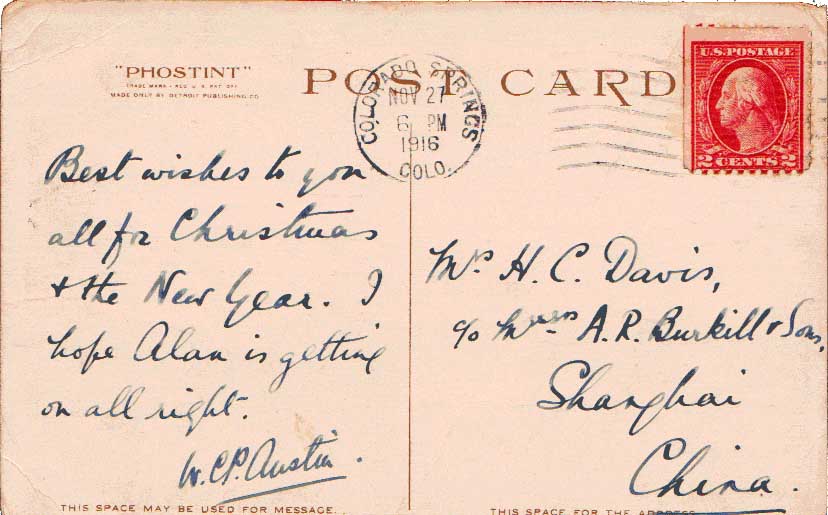 "PHOSTINT"
TRADE MARK - REG. U.S. PAT. OFF.
MADE ONLY BY DETROIT PUBLISHING CO.
POST CARD
COLORADO SPRINGS
NOV 27
6 PM
1916
COLO.
U.S. POSTAGE
2 CENTS 2
Best wishes to you
all for Christmas
& the New Year. I
hope Alan is getting
on all right.
W.C.P. Austin.
Mrs H. C. Davis,
c/o Messrs A. R. Burkill & Sons,
Shanghai
China.
THIS SPACE MAY BE USED FOR MESSAGE.
THIS SPACE FOR THE ADDRESS